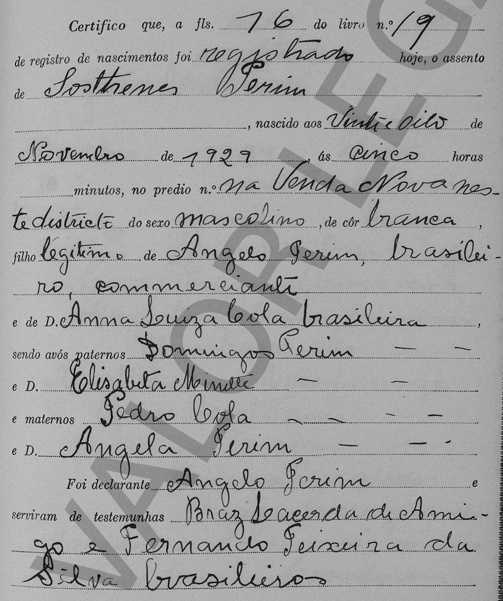 Certifico que, a fls. 16 do livro n.º 19
de registro de nascimentos foi registrado hoje, o assento
de Sosthenes Perim
, nascido aos Vinte e oito de
Novembro de 1929, ás cinco horas
minutos, no predio n.º na Venda Nova nes-
te districto do sexo mascolino, de côr branca,
filho legitimo de Angelo Perim, brasilei-
ro, commerciante
e de D. Anna Luiza Cola brasileira,
sendo avós paternos Domingos Perim — —
e D. Elisabeta Minette — —
e maternos Pedro Cola — — — —
e D. Angela Perim — — -
Foi declarante Angelo Perim e
serviram de testemunhas Braz Lacerda de Ami-
go e Fernando Teixeira da
Silva brasileiros
VALOR LEGA